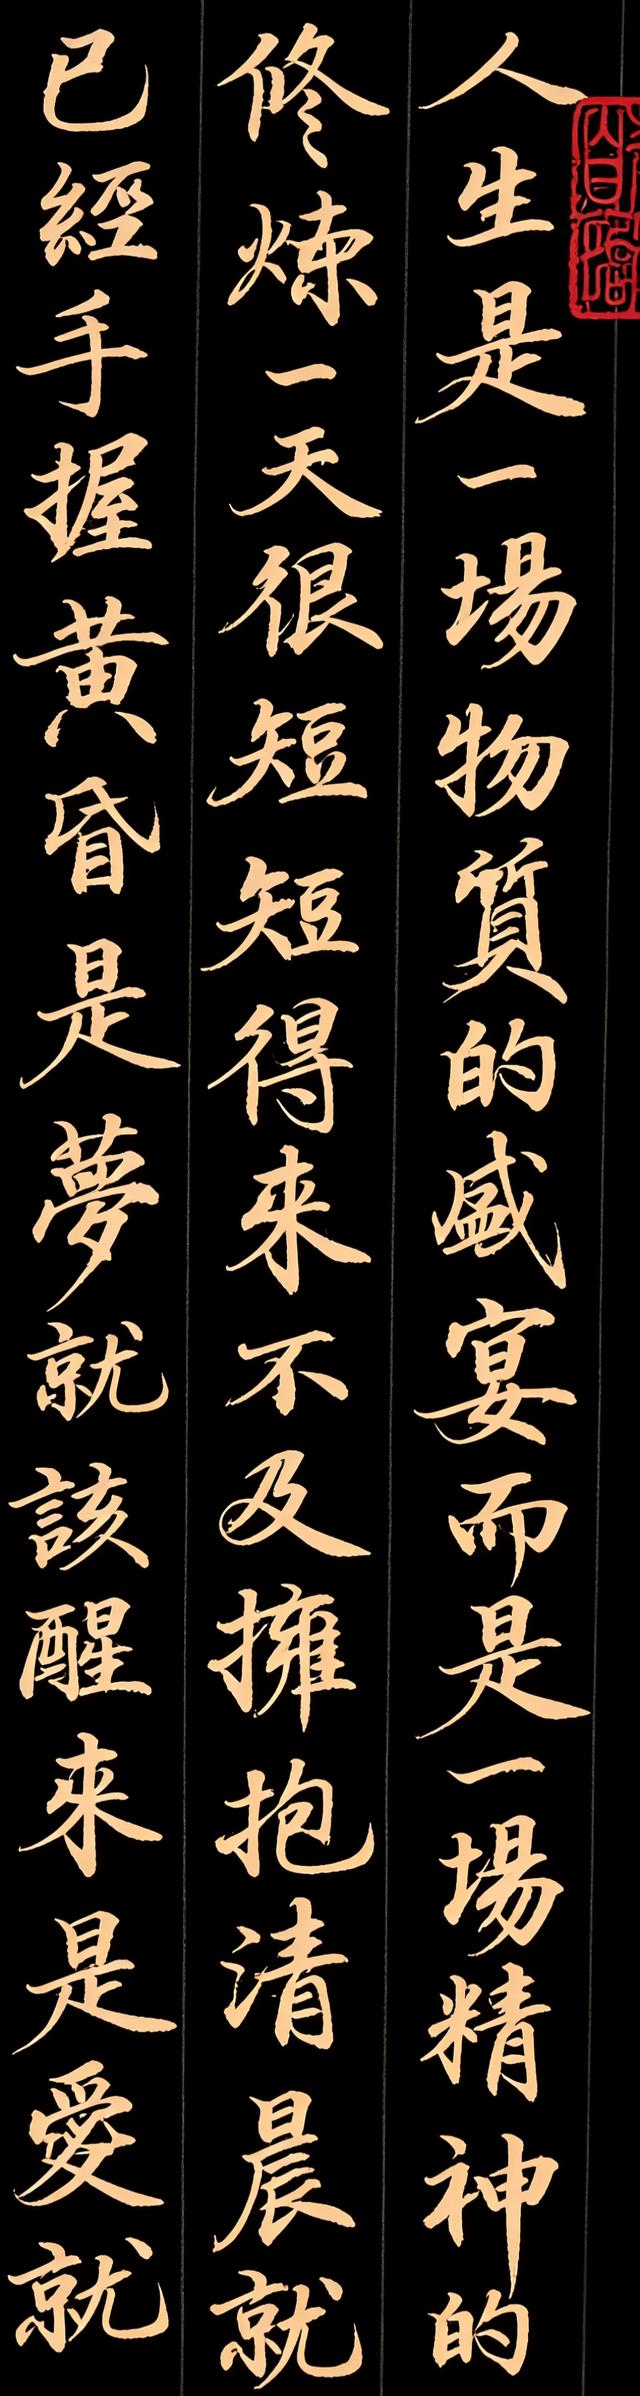 人生是一場物質的盛宴而是一場精神的
修煉一天很短短得來不及擁抱清晨就
已經手握黄昏是夢就該醒來是愛就